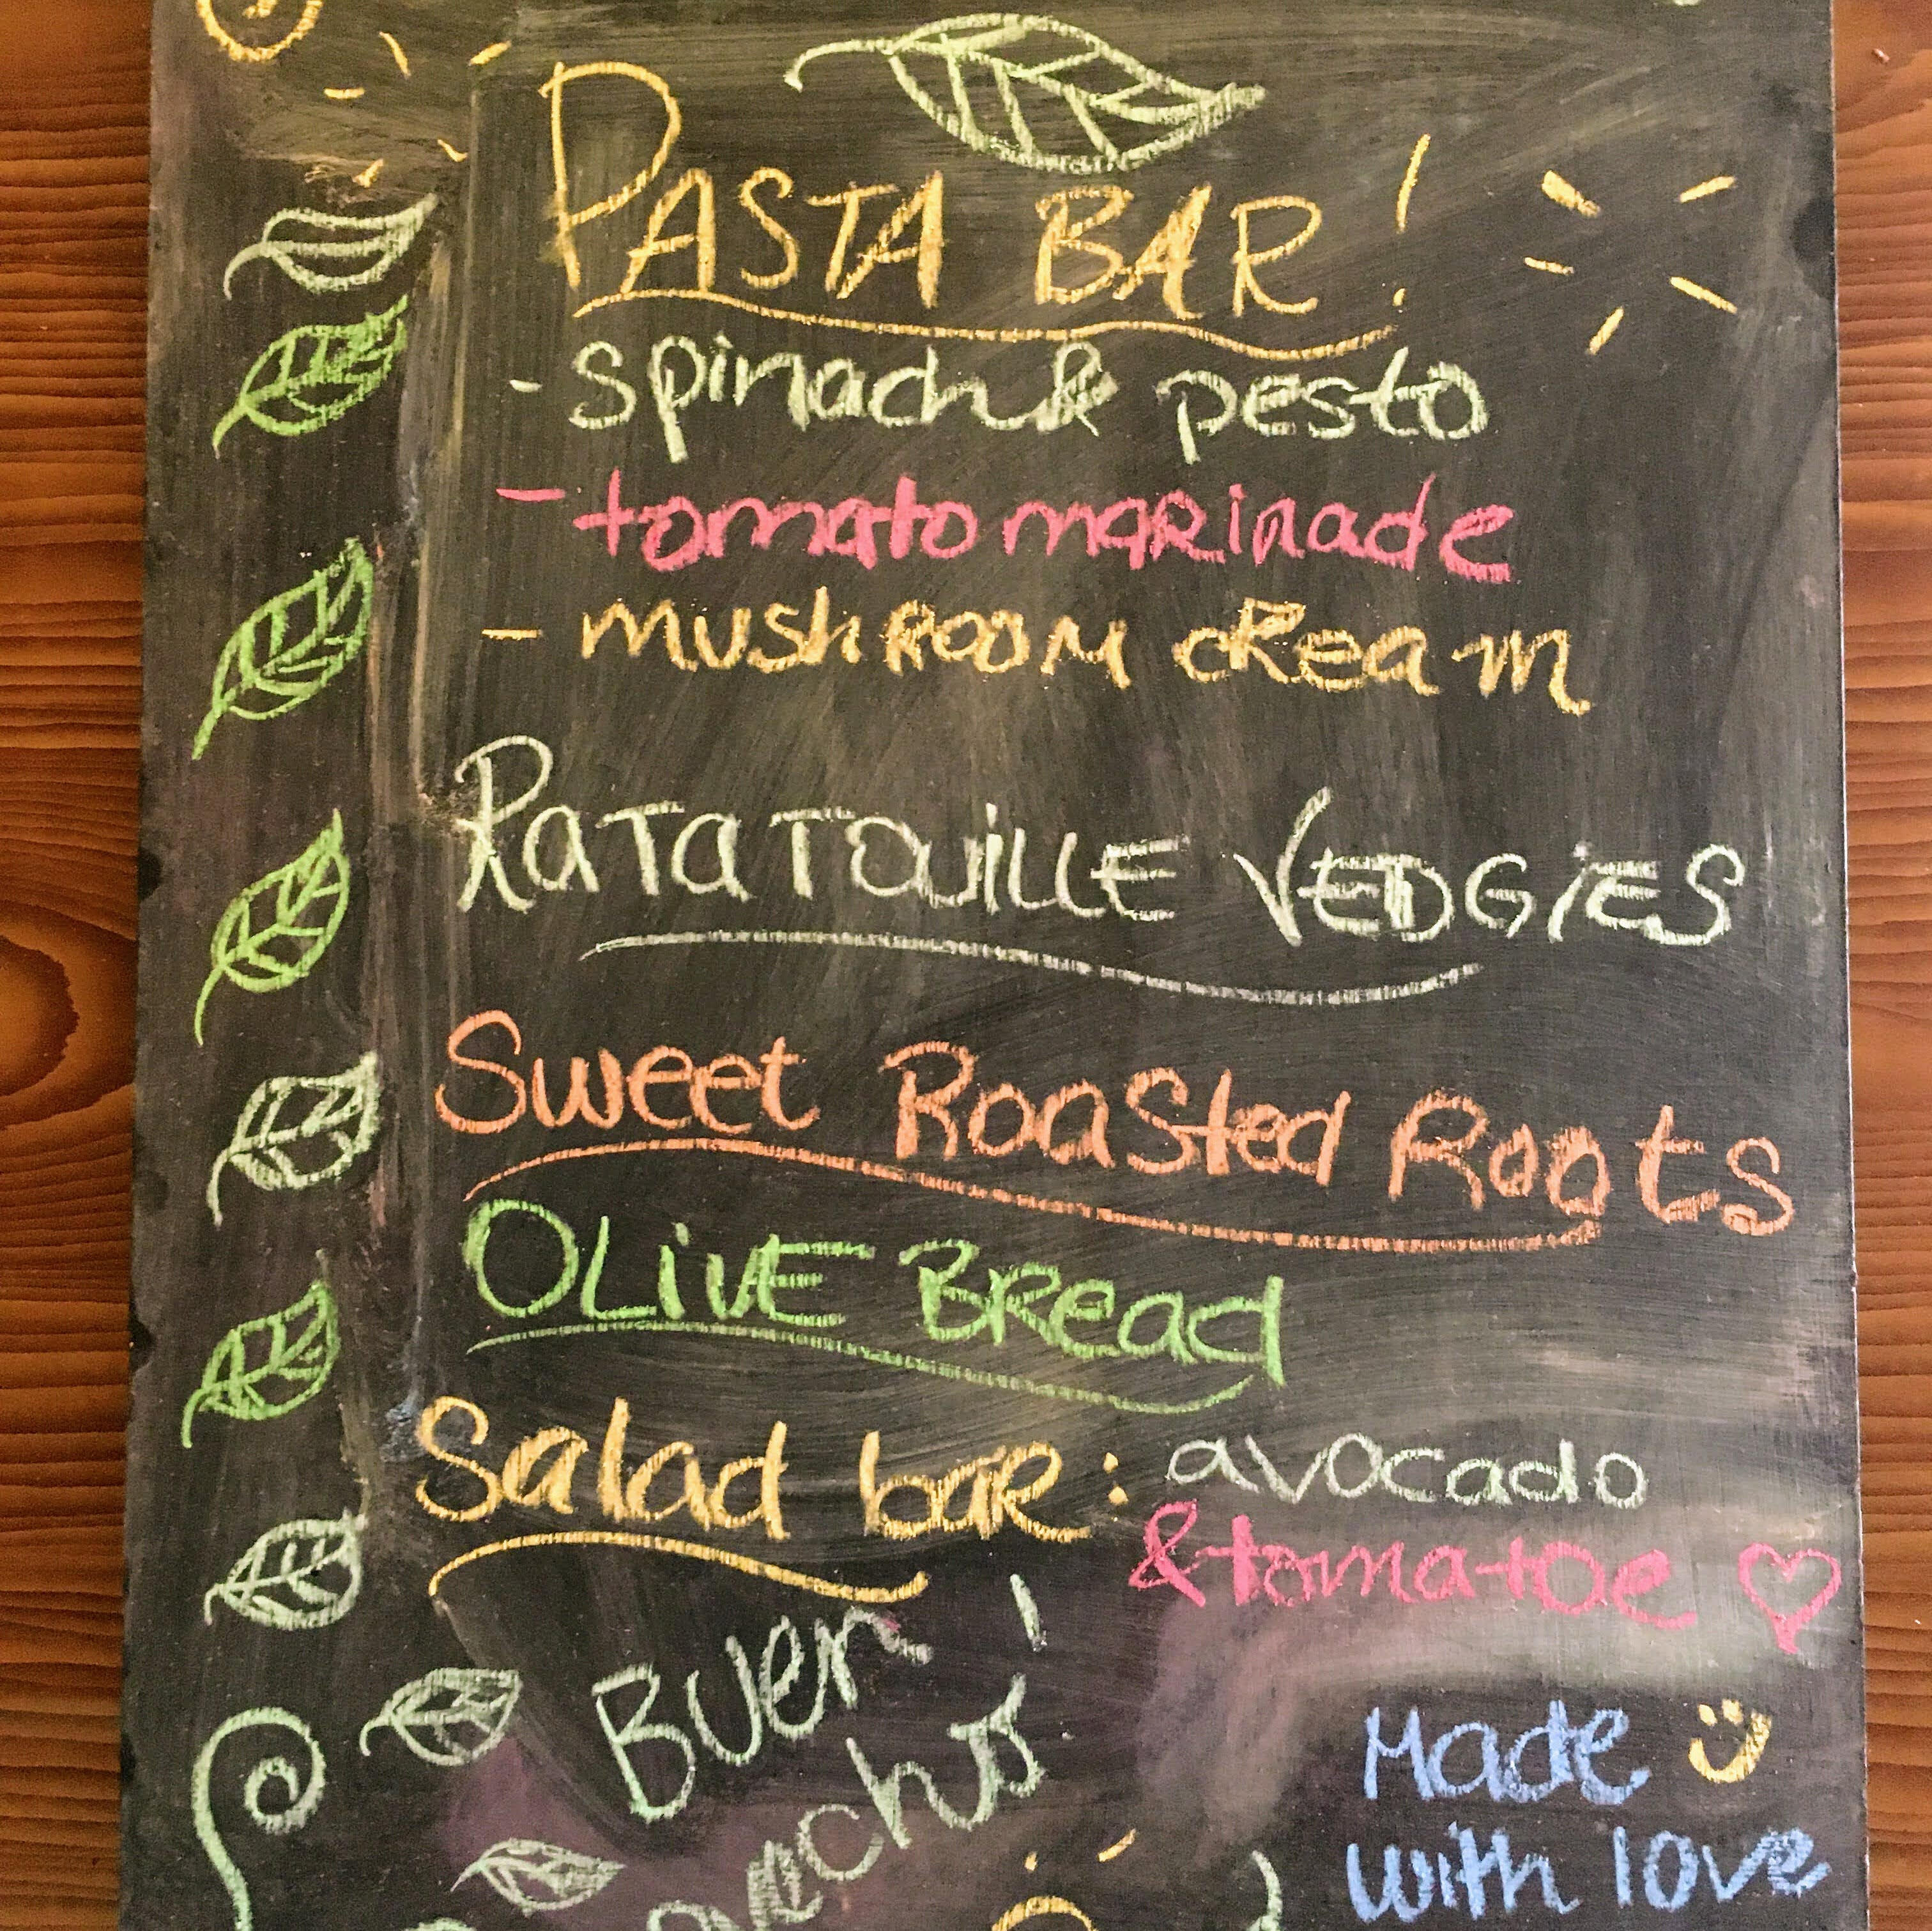 PASTA BAR!
- spinach & pesto
- tomato marinade
- mushroom cream
Ratatouille Vedgies
Sweet Roasted Roots
Olive Bread
Salad bar: avocado
& tomatoe
Buen
Made
with love